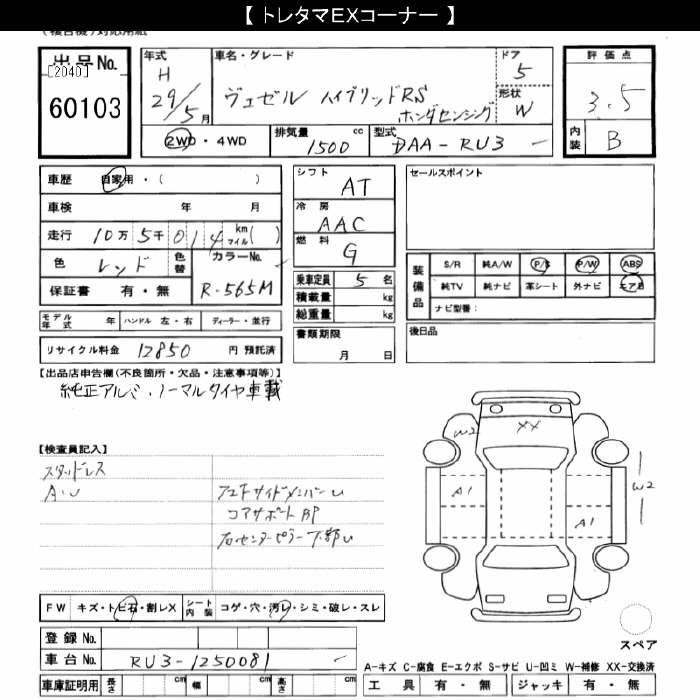 【 トレタマEXコーナー 】
出品No.
[2040]
60103
年式
H
29/5月
車名・グレード
ヴェゼル ハイブリッドRS
ホンダセンシング
ドア
5
形状
W
評価点
3.5
内装
B
2WD ・ 4WD
排気量 1500 cc
型式 DAA-RU3
車歴 自家用・( )
車検 年 月
走行 10万 5千 014 km マイル( )
色 レッド 色替
カラーNo. R-565M
保証書 有・無
モデル年式 年 ハンドル 左・右 ディーラー・並行
リサイクル料金 12850 円 預託済
シフト AT
冷房 AAC
燃料 G
乗車定員 5 名
積載量 kg
総重量 kg
書類期限
月 日
セールスポイント
装備品
S/R 純A/W P/S P/W ABS
純TV 純ナビ 革シート 外ナビ エアB
ナビ型番:
後日品
【出品店申告欄(不良箇所・欠品・注意事項等)】
純正アルミ・ノーマルタイヤ車載
【検査員記入】
スタッドレス
A・U
コアサポートBP
右センターピラー下部U
W2
XX
A1
A1
W2
FW キズ・トビ石・割レX
シート内装 コゲ・穴・汚レ・シミ・破レ・スレ
登録No.
車台No. RU3-1250081
車庫証明用 長さ cm 幅 cm 高さ cm
スペア
A-キズ C-腐食 E-エクボ S-サビ U-凹ミ W-補修 XX-交換済
工具 有・無 ジャッキ 有・無